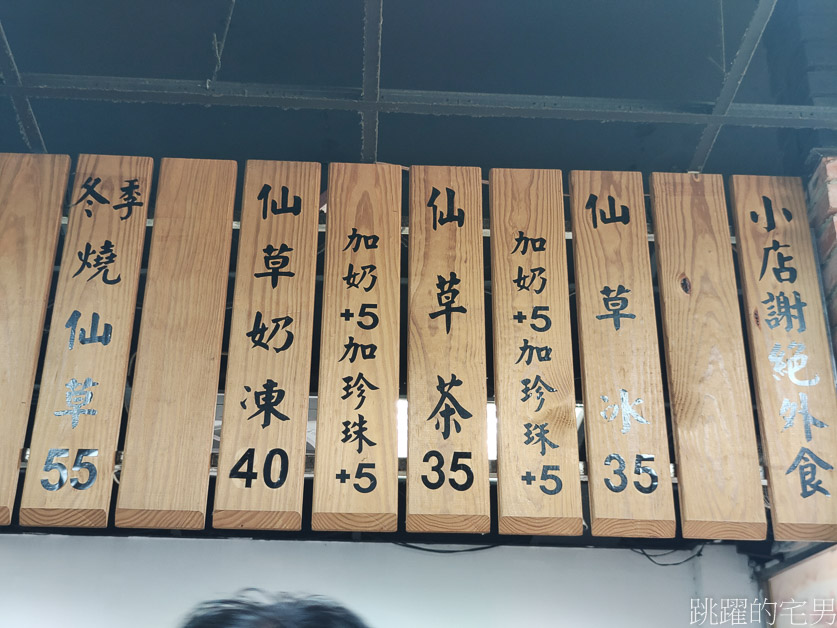 小店謝絕外食
仙草冰 35
加奶+5加珍珠+5
仙草茶 35
加奶+5加珍珠+5
仙草奶凍 40
冬季燒仙草 55
跳躍的宅男